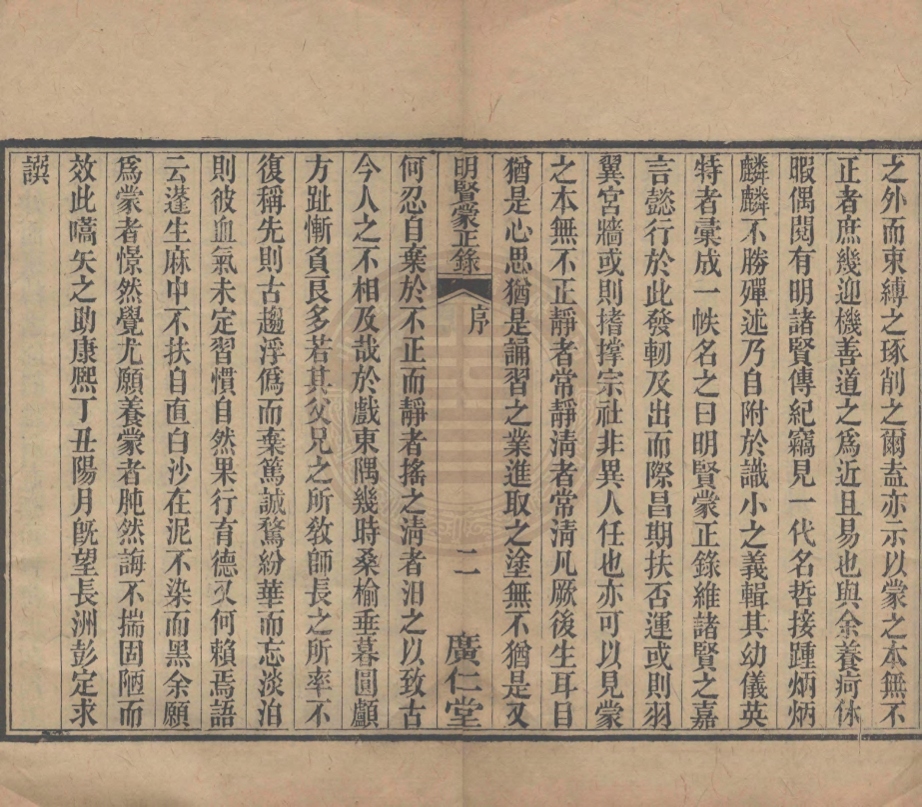 之外而束縛之琢削之爾盍亦示以蒙之本無不
正者庶幾迎機善道之爲近且易也與余養疴休
暇偶閱有明諸賢傳紀竊見一代名哲接踵炳炳
麟麟不勝殫述乃自附於識小之義輯其幼儀英
特者彙成一帙名之曰明賢蒙正錄維諸賢之嘉
言懿行於此發軔及出而際昌期扶否運或則羽
翼宮牆或則搘撑宗社非異人任也亦可以見蒙
之本無不正靜者常靜淸者常淸凡厥後生耳目
猶是心思猶是誦習之業進取之塗無不猶是又
明賢蒙正錄 序 二 廣仁堂
何忍自棄於不正而靜者搖之淸者汨之以致古
今人之不相及哉於戲東隅幾時桑榆垂暮圓顱
方趾慚負良多若其父兄之所敎師長之所率不
復稱先則古趨浮僞而棄篤誠騖紛華而忘淡泊
則彼血氣未定習慣自然果行育德又何賴焉語
云蓬生麻中不扶自直白沙在泥不染而黑余願
爲蒙者憬然覺尤願養蒙者肫然誨不揣固陋而
效此嚆矢之助康熙丁丑陽月旣望長洲彭定求
譔